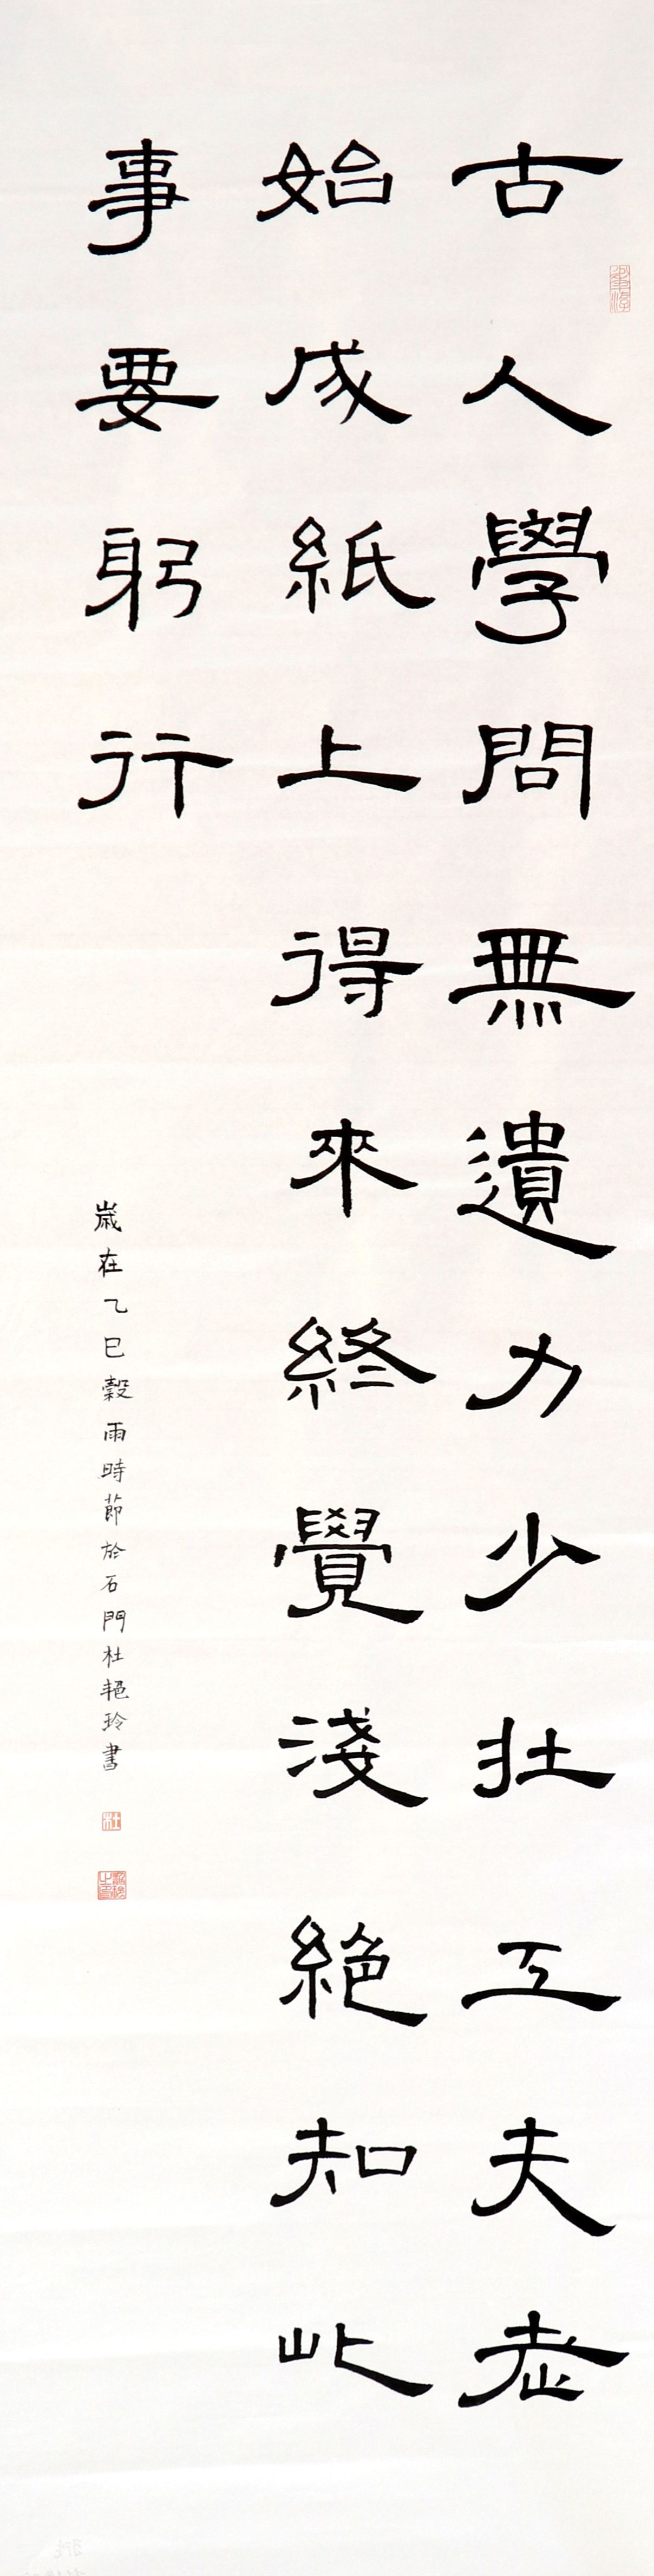 古人學問無遺力少壯工夫老
始成紙上得來終覺淺絕知此
事要躬行
歲在乙巳穀雨時節於石門杜艳玲書
杜